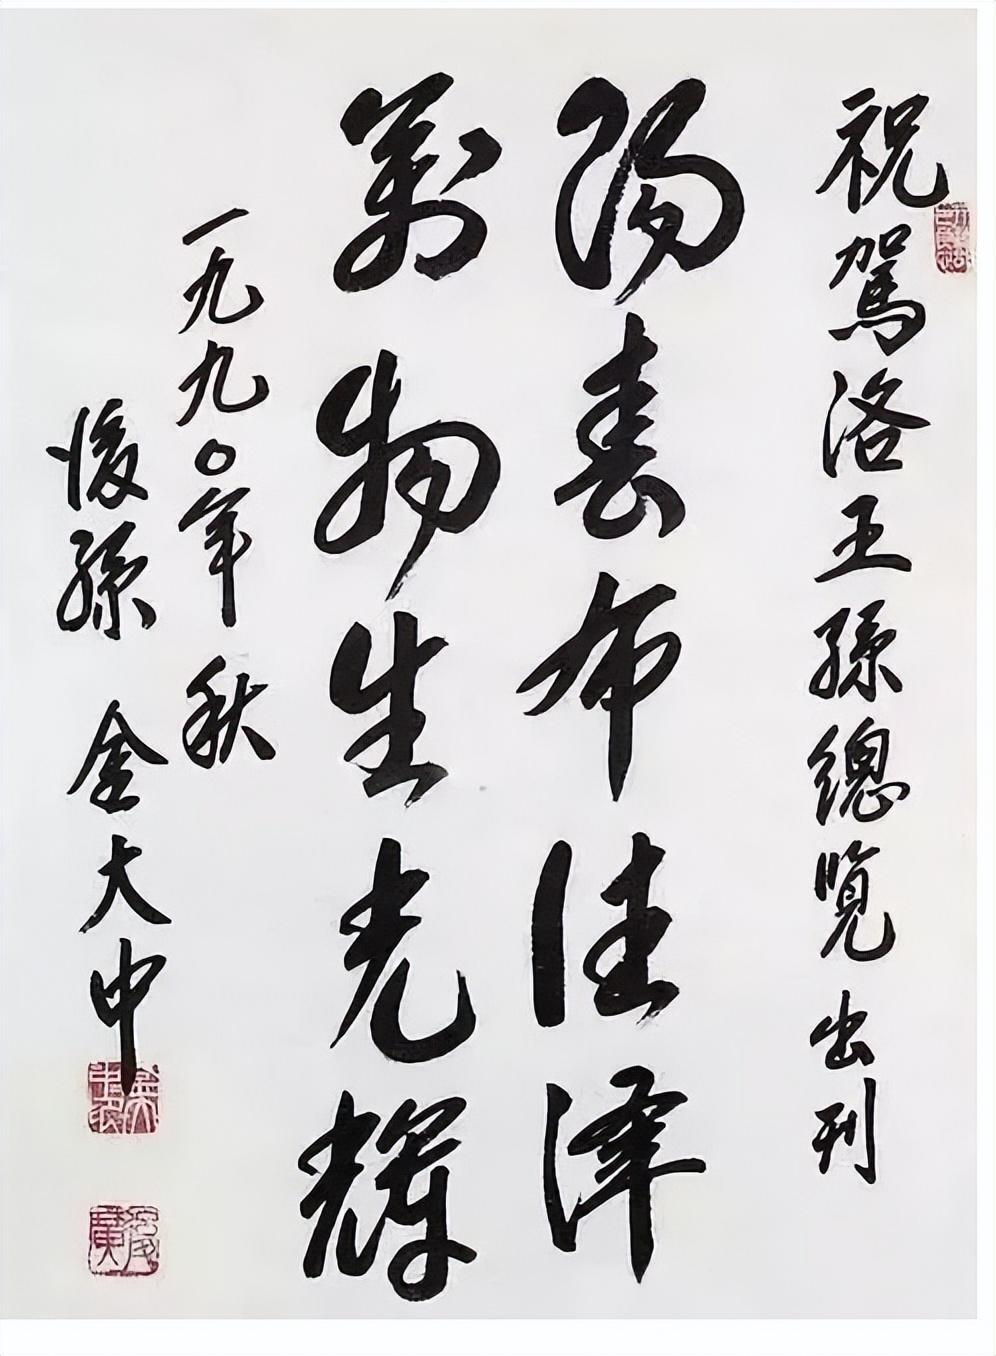 祝駕洛王孫總覽出刊
陽春布德澤
萬物生光輝
一九九〇年 秋
後孫 金大中
後廣